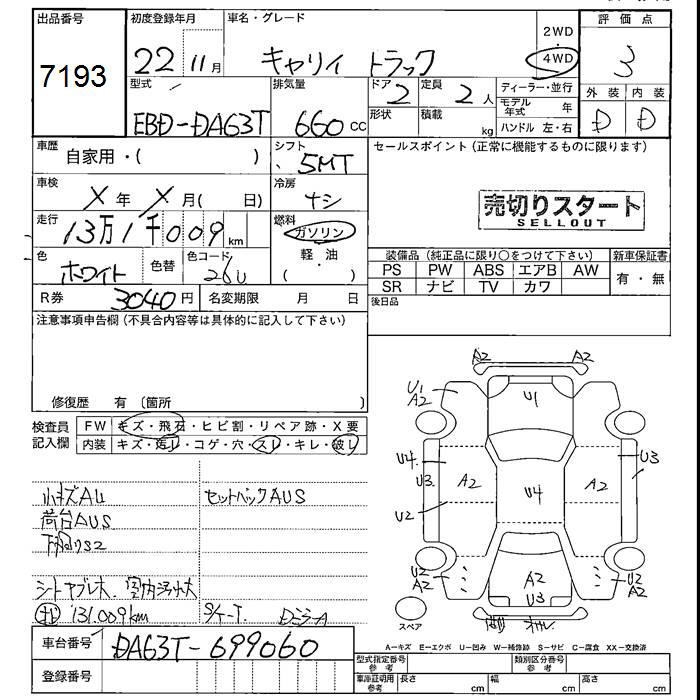 出品番号
7193
初度登録年月
22 11月
車名・グレード
キャリイ トラック
2WD
4WD
評価点
3
外装 内装
D D
型式
EBD-DA63T
排気量
660 cc
ドア
2
定員
2人
形状
積載
kg
ディーラー・並行
モデル年式 年
ハンドル 左・右
車歴
自家用・( )
シフト
5MT
セールスポイント(正常に機能するものに限ります)
車検
X年 X月( 日)
冷房
ナシ
売切りスタート
SELLOUT
走行
13万1千009km
燃料
ガソリン
軽・油
・
( )
色
ホワイト
色替
色コード
26U
装備品(純正品に限り○をつけて下さい)
新車保証書
PS PW ABS エアB AW
SR ナビ TV カワ
有・無
R券
3040円
名変期限
月 日
後日品
注意事項申告欄(不具合内容等は具体的に記入して下さい)
修復歴 有 (箇所 )
検査員記入欄
FW キズ・飛石・ヒビ割・リペア跡・X要
内装 キズ・汚レ・コゲ・穴・スレ・キレ・破レ
小キズAU
セットバックAUS
荷台AUS
下回りS2
シートヤブレ大 室内汚れ大
131.009km
車台番号
DA63T-699060
登録番号
A2 A2
U1
A2
U1
U4
U3
A2
U4
A2
U3
U2
U2
A2
A2
U3
U2
A2
スペア
A-キズ E-エクボ U-凹み W-補修跡 S-サビ C-腐食 XX-交換済
型式指定番号
参考
類別区分番号
参考
車庫証明用
参考
長さ cm
幅 cm
高さ cm